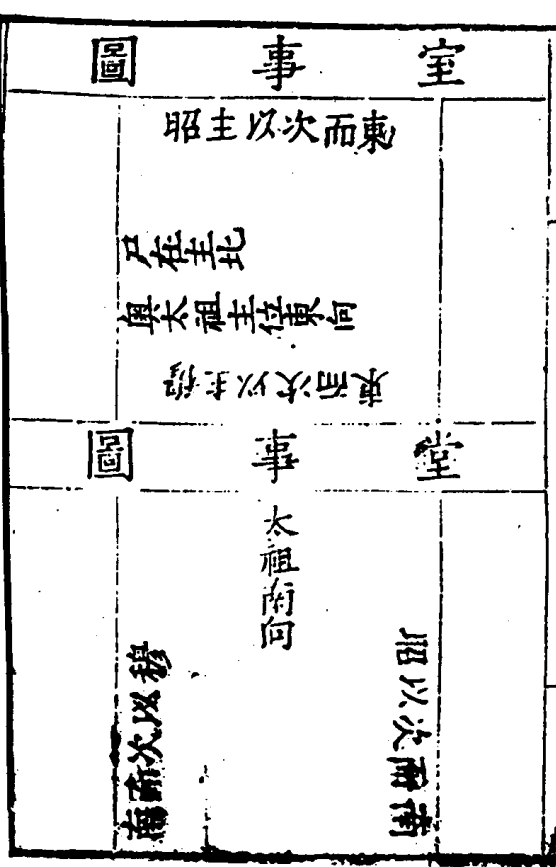 室事圖
昭主以次而東
尸在主北
奧太祖主位東向
穆主以次而東
堂事圖
太祖南向
昭以次而南
穆以次而南